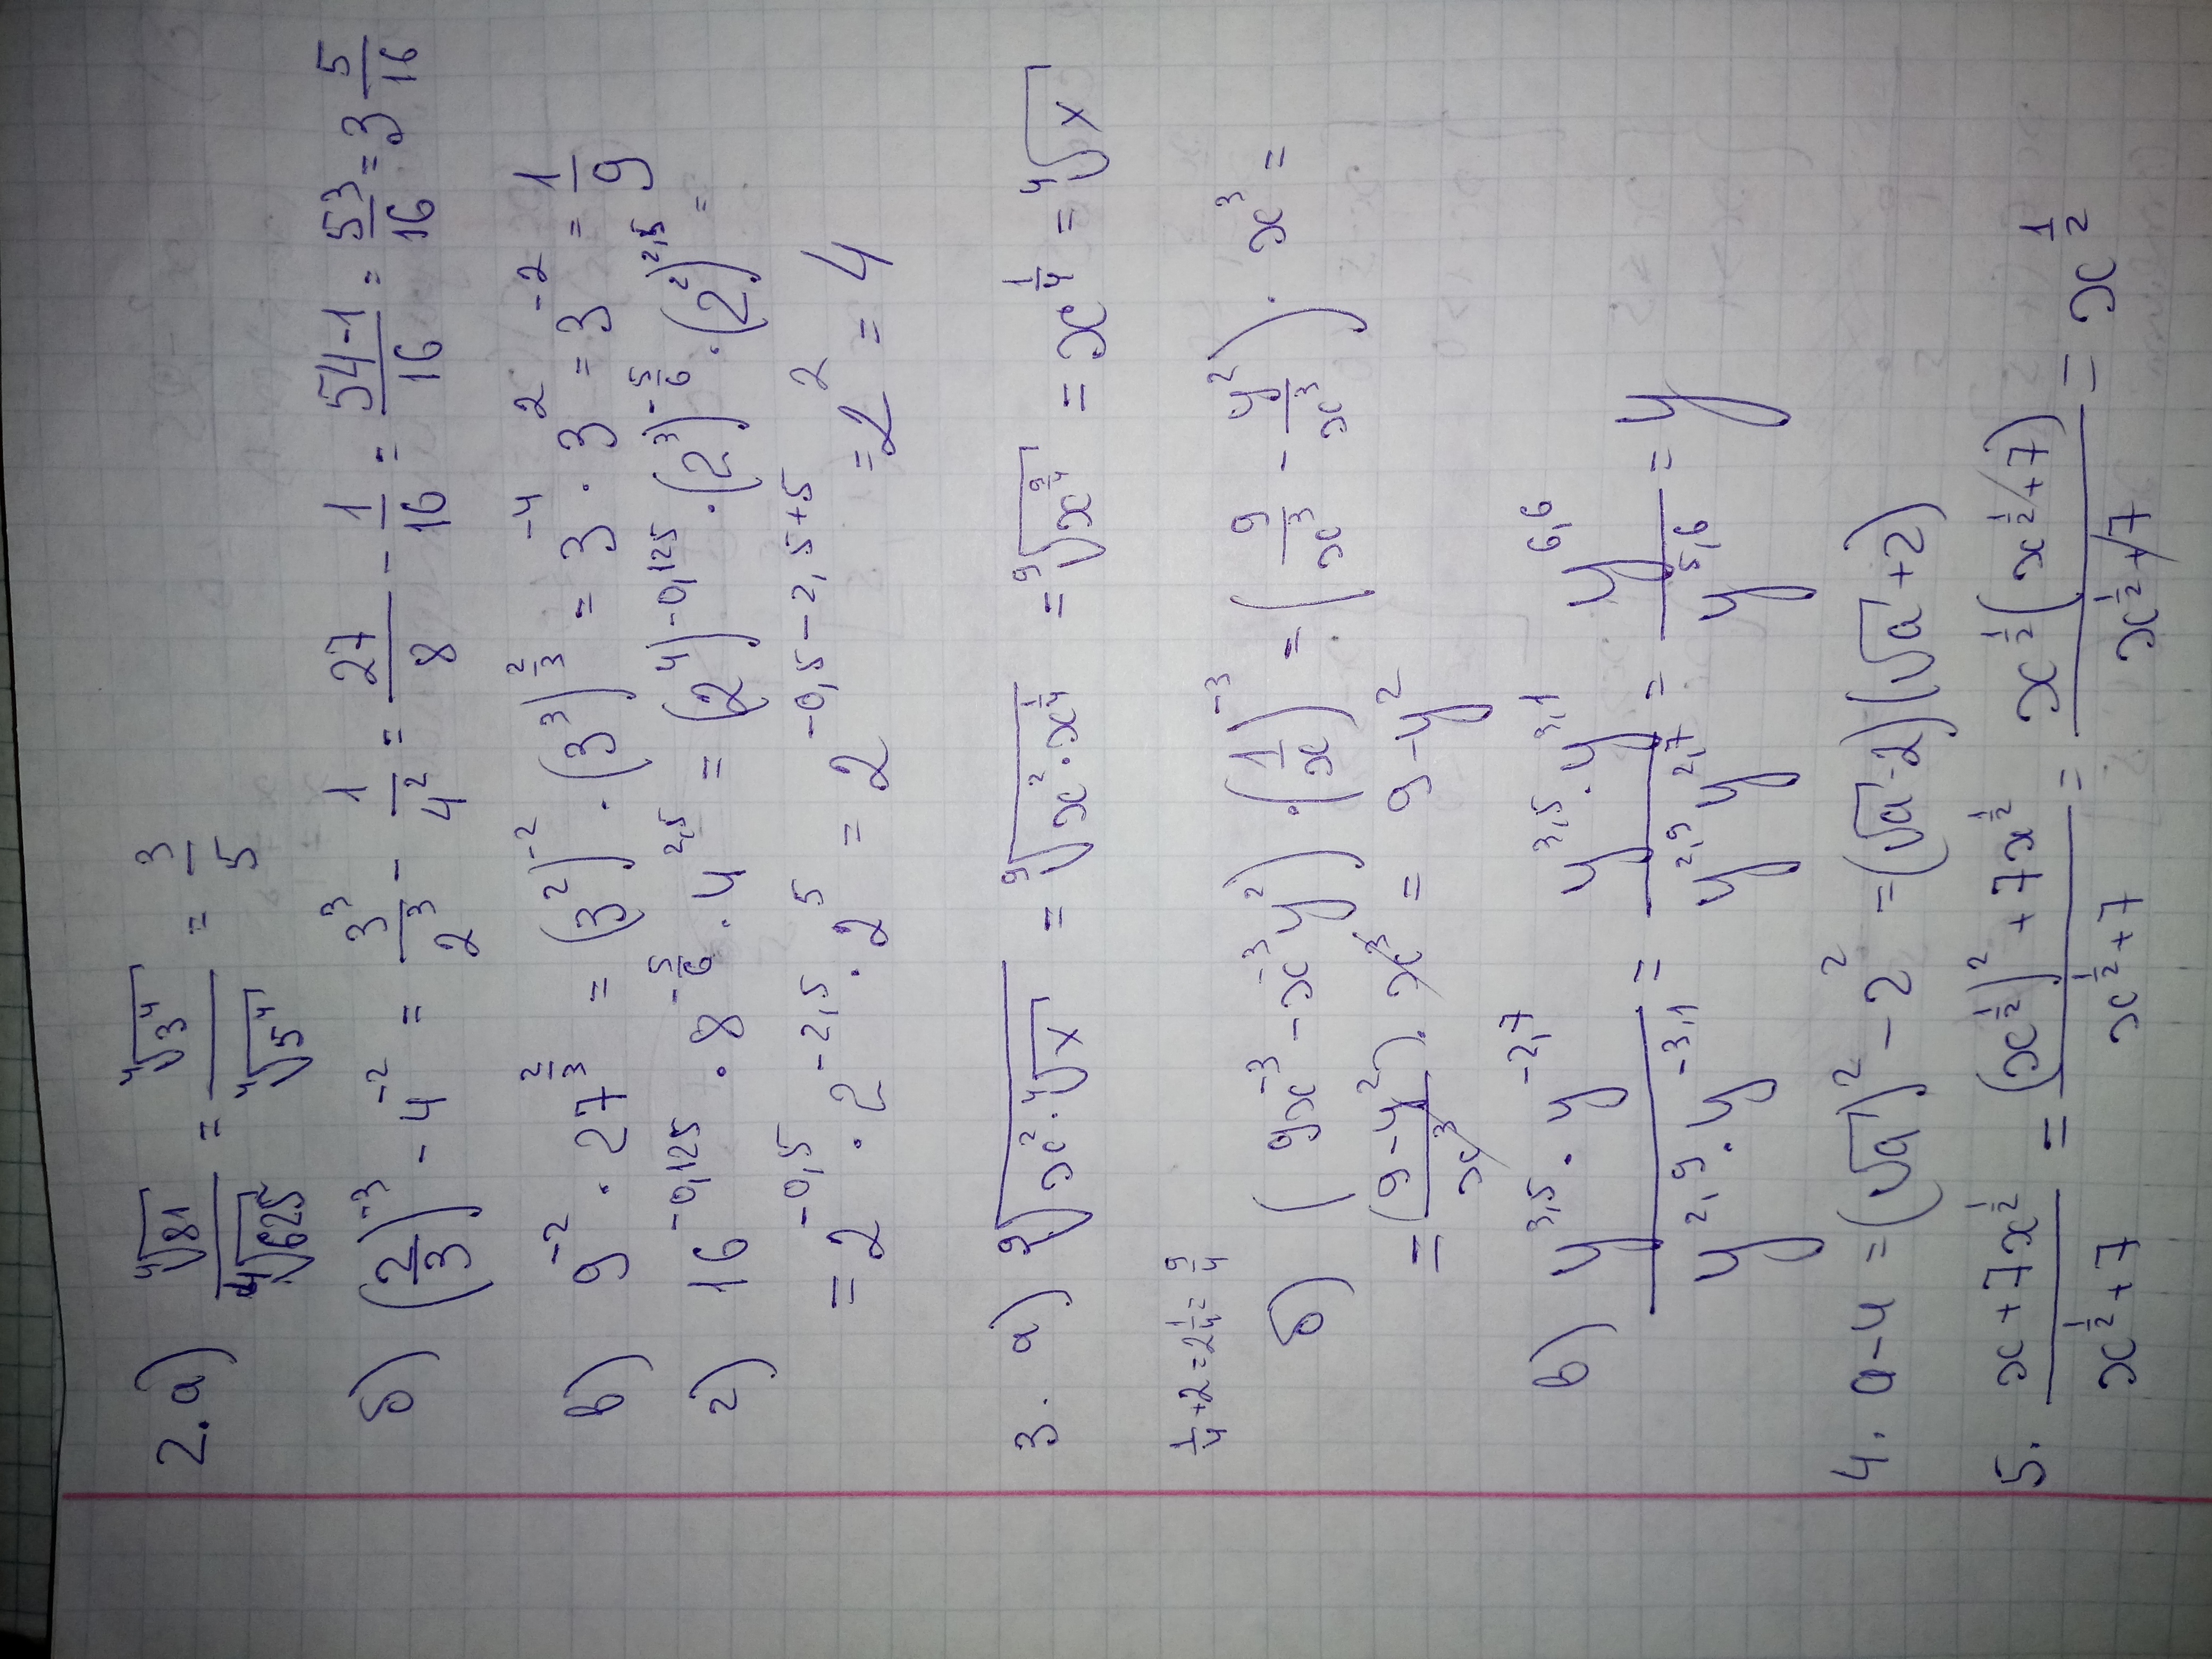 2. а) ⁴√81 / ⁴√625 = ⁴√3⁴ / ⁴√5⁴ = 3/5
б) (2/3)⁻³ - 4⁻² = 3³/2³ - 1/4² = 27/8 - 1/16 = (54-1)/16 = 53/16 = 3 5/16
в) 9⁻² · 27^(2/3) = (3²)⁻² · (3³)^(2/3) = 3⁻⁴ · 3² = 3⁻² = 1/9
г) 16^(-0,125) · 8^(-5/6) · 4^(2,5) = (2⁴)^(-0,125) · (2³)^(-5/6) · (2²)^(2,5) =
= 2^(-0,5) · 2^(-2,5) · 2⁵ = 2^(-0,5-2,5+5) = 2² = 4
3. а) ⁹√(x² · ⁴√x) = ⁹√(x² · x^(1/4)) = ⁹√(x^(9/4)) = x^(1/4) = ⁴√x
1/4 + 2 = 2 1/4 = 9/4
б) (9x⁻³ - x⁻³y²) · (1/x)⁻³ = (9/x³ - y²/x³) · x³ =
= ((9-y²)/x³) · x³ = 9 - y²
в) (y^(3,5) · y^(-2,7)) / (y^(2,9) · y^(-3,1)) = (y^(3,5) · y^(3,1)) / (y^(2,9) y^(2,7)) = y^(6,6) / y^(5,6) = y
4. а-4 = (√a)² - 2² = (√a-2)(√a+2)
5. (x+7x^(1/2)) / (x^(1/2)+7) = ((x^(1/2))² + 7x^(1/2)) / (x^(1/2)+7) = x^(1/2)(x^(1/2)+7) / (x^(1/2)+7) = x^(1/2)